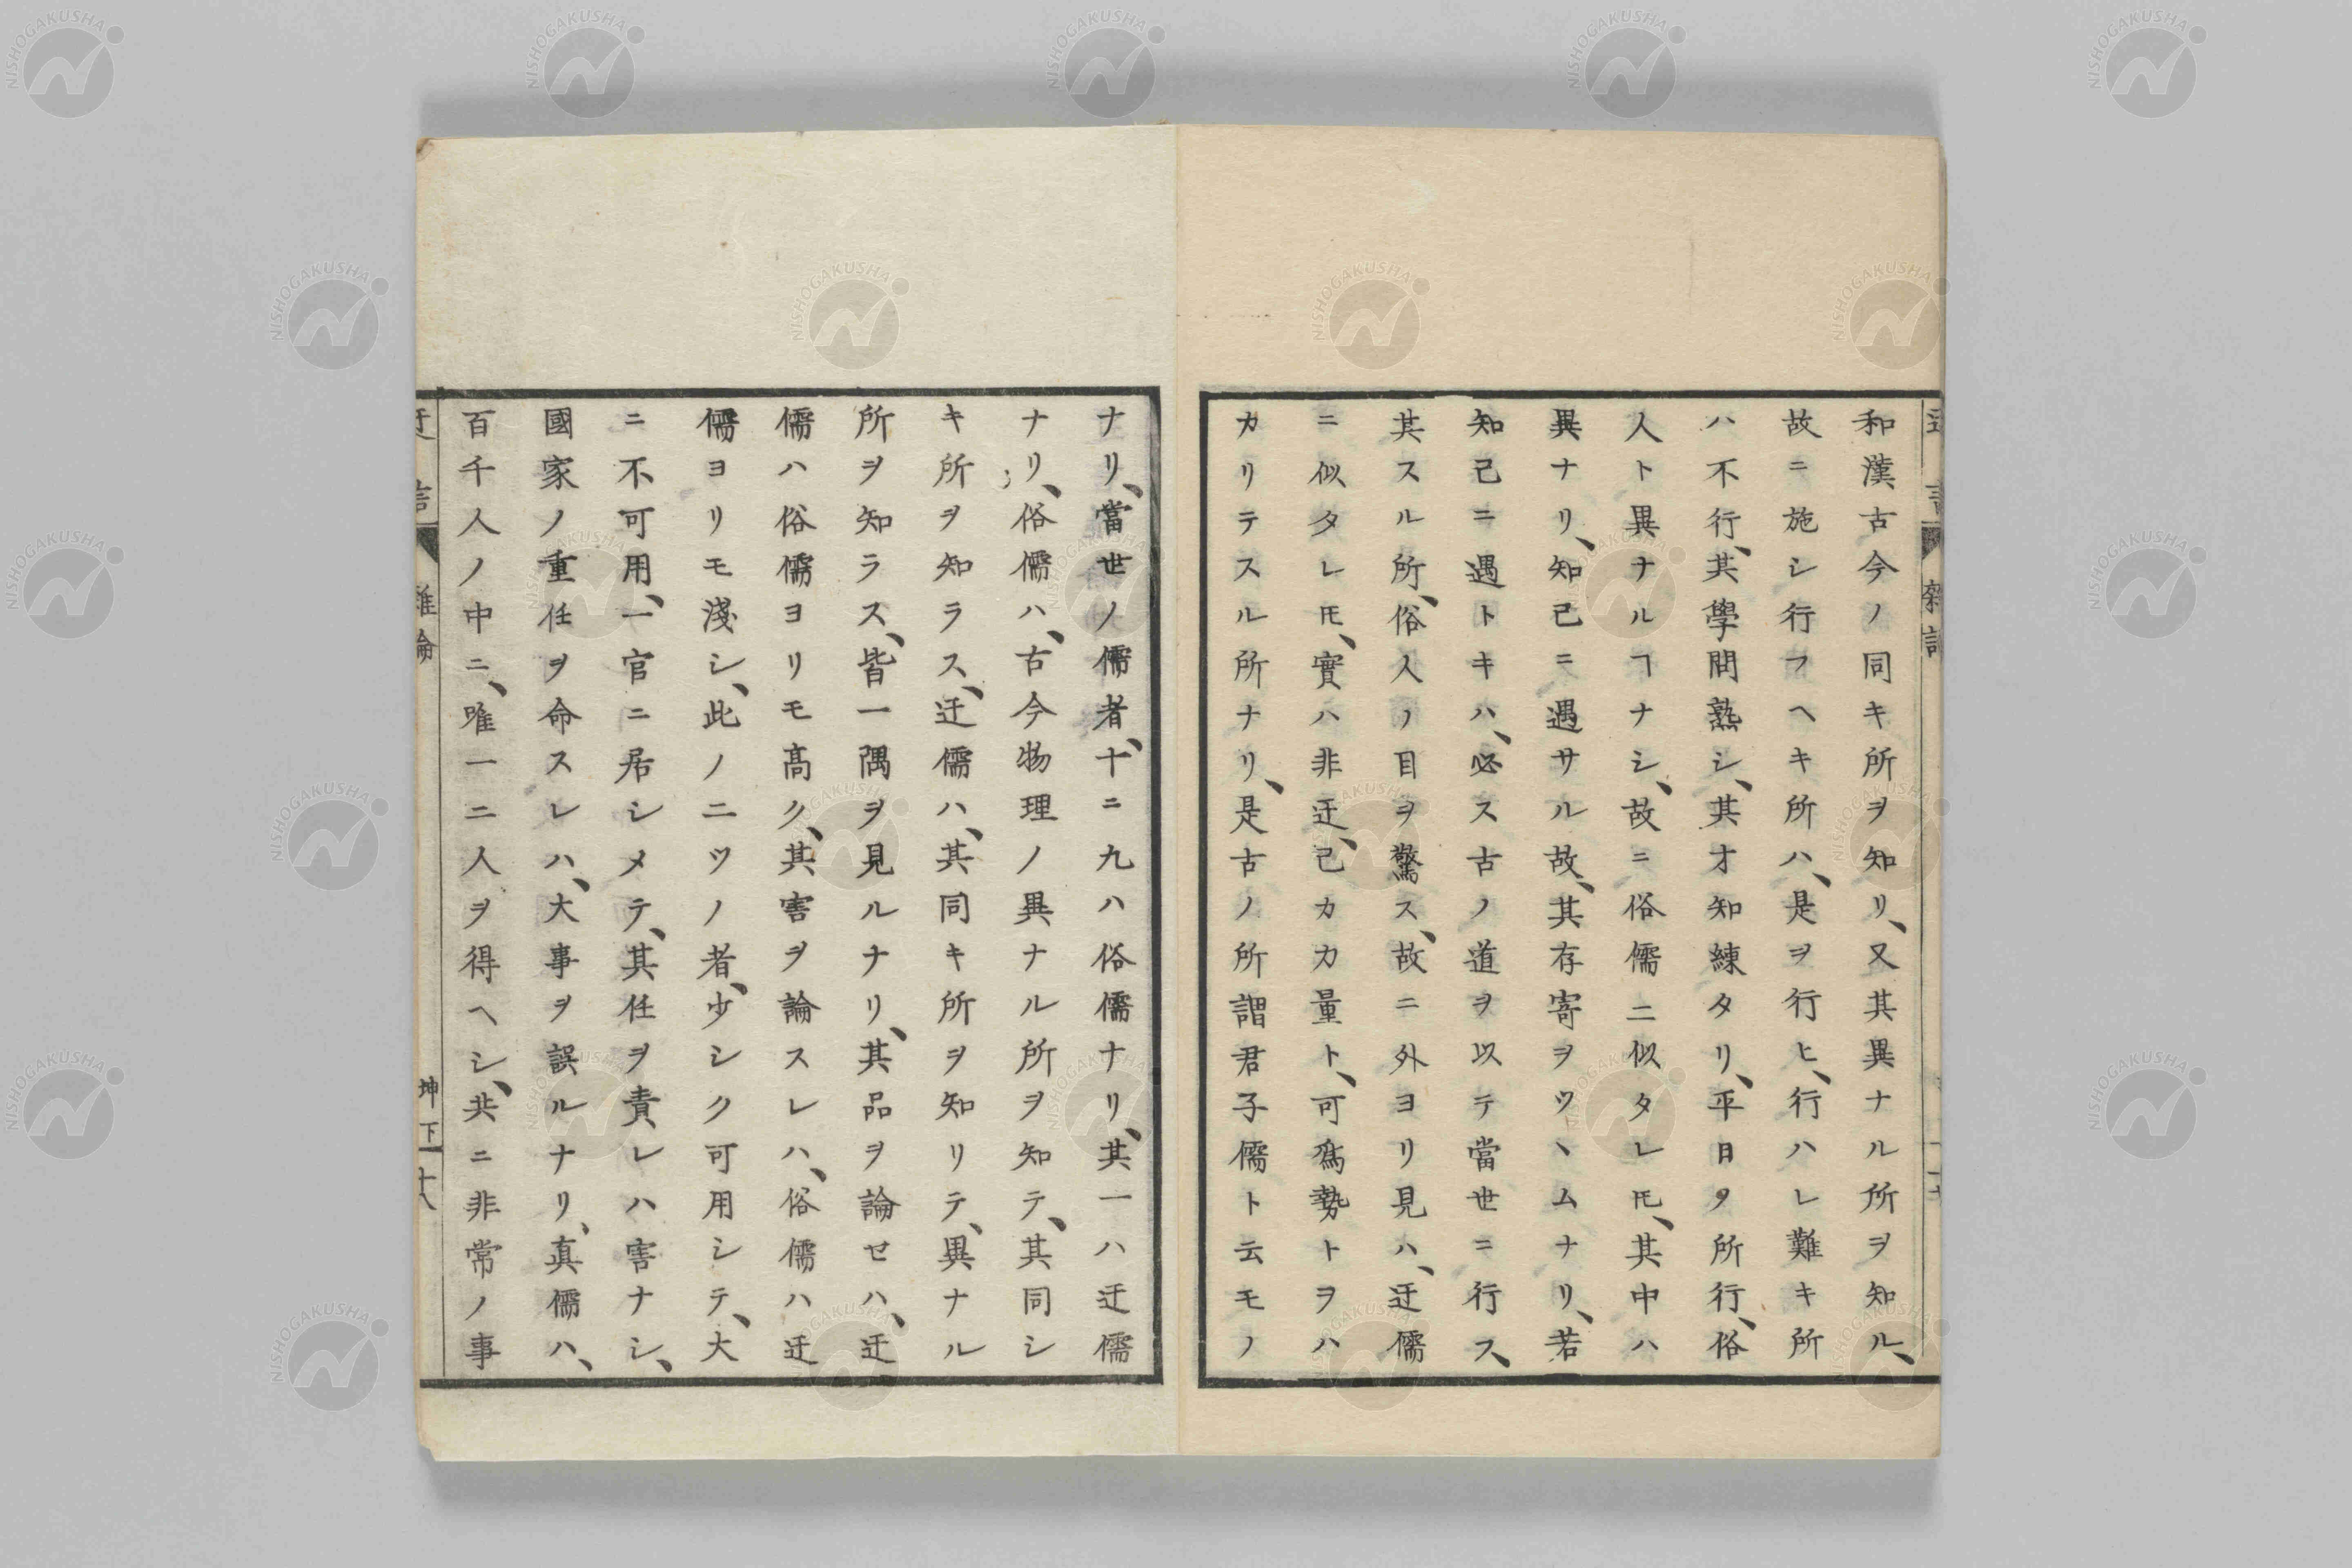 和漢古今ノ同キ所ヲ知リ、又其異ナル所ヲ知ル、
故ニ施シ行フヘキ所ハ、是ヲ行ヒ、行ハレ難キ所
ハ不行、其學問熟シ、其才知練タリ、平日ノ所行、俗
人ト異ナルヿナシ、故ニ俗儒ニ似タレ𪜈、其中ハ
異ナリ、知己ニ遇サル故、其存寄ヲツヽムナリ、若
知己ニ遇トキハ、必ス古ノ道ヲ以テ當世ニ行ス、
其スル所、俗人ノ目ヲ驚ス、故ニ外ヨリ見ハ、迂儒
ニ似タレ𪜈、實ハ非迂、己カ力量ト、可爲勢トヲハ
カリテスル所ナリ、是古ノ所謂君子儒ト云モノ
ナリ、當世ノ儒者、十ニ九ハ俗儒ナリ、其一ハ迂儒
ナリ、俗儒ハ、古今物理ノ異ナル所ヲ知テ、其同シ
キ所ヲ知ラス、迂儒ハ、其同キ所ヲ知リテ、異ナル
所ヲ知ラス、皆一隅ヲ見ルナリ、其品ヲ論セハ、迂
儒ハ俗儒ヨリモ髙ク、其害ヲ論スレハ、俗儒ハ迂
儒ヨリモ淺シ、此ノ二ツノ者、少シク可用シテ、大
ニ不可用、一官ニ居シメテ、其任ヲ責レハ害ナシ、
國家ノ重任ヲ命スレハ、大事ヲ誤ルナリ、真儒ハ、
百千人ノ中ニ、唯一二人ヲ得ヘシ、共ニ非常ノ事
坤下 十八